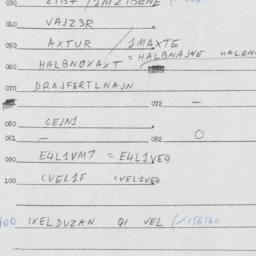 030
040 VAJZ3R
050 AXTUR / JMAXTE
060 HALBNOXAXT = HALBNAJNE HALBN
070 DRAJFERTLNAJN
072 —
080 CEJNJ
081 — 082 O
090 E4L1VM7 = E4L1VE4
100 CVEL1F CVEL1VE4
900 IXELDUZAN QI VEL (/156160